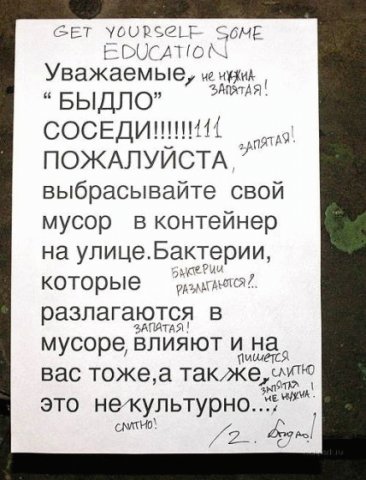 GET YOURSELF SOME
EDUCATION
Уважаемые, не нужна
запятая!
“ БЫДЛО”
СОСЕДИ!!!!!!111
ПОЖАЛУЙСТА, запятая!
выбрасывайте свой
мусор в контейнер
на улице.Бактерии,
которые Бактерии
разлагаются?..
разлагаются в
запятая!
мусоре, влияют и на
пишется
вас тоже,а так же, слитно
запятая
не нужна!
это не культурно....
слитно!
/2.